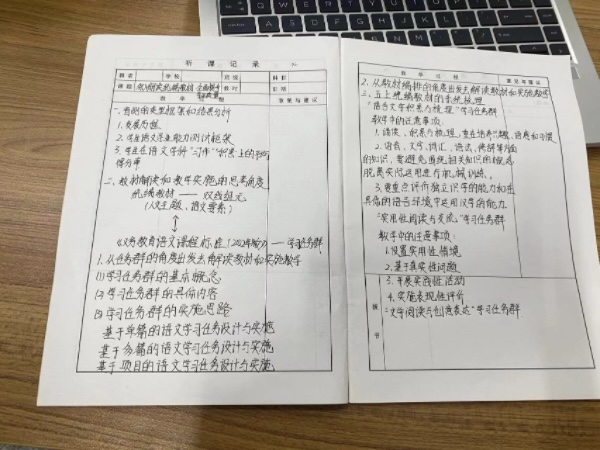 听课记录
姓名 学校 班级 科目
课题 统编教材 全面提升 教师 日期
教学过程 意见与建议
一、当前的典型框架和结果分析
1.发展历程
2.学生语文学业能力测试框架
3.学生在语文学科“习作”积累上的平均
得分率
二、教材解读和教学实施的思考角度
统编教材——双线组元
(人文主题、语文要素)
《义务教育语文课程标准(2022年版)》——学习任务群
1.从任务群的角度出发去解读教材和实施教学
(1)学习任务群的基本概念
(2)学习任务群的具体内容
(3)学习任务群的实施思路
基于单篇的语文学习任务设计与实施
基于多篇的语文学习任务设计与实施
基于项目的语文学习任务设计与实施
教学过程 意见与建议
2.从教材编排的角度出发去解读教材和实施教学
三、五上统编教材的系统梳理
“语言文字积累与梳理”学习任务群
教学中的注意事项:
1.诵读、积累与梳理,重在培养兴趣、语感和习惯
2.语音、文字、词汇、语法、修辞等方面
的知识,要避免围绕相关知识的概念
脱离实际运用进行机械训练。
3.要重点评价独立识字的能力和在
具体的语言环境中运用汉字的能力
“实用性阅读与交流”学习任务群
教学中的注意事项:
1.设置实用性情境
2.基于真实性问题
3.开展实践性活动
4.实施表现性评价
“文学阅读与创意表达”学习任务群
板
书